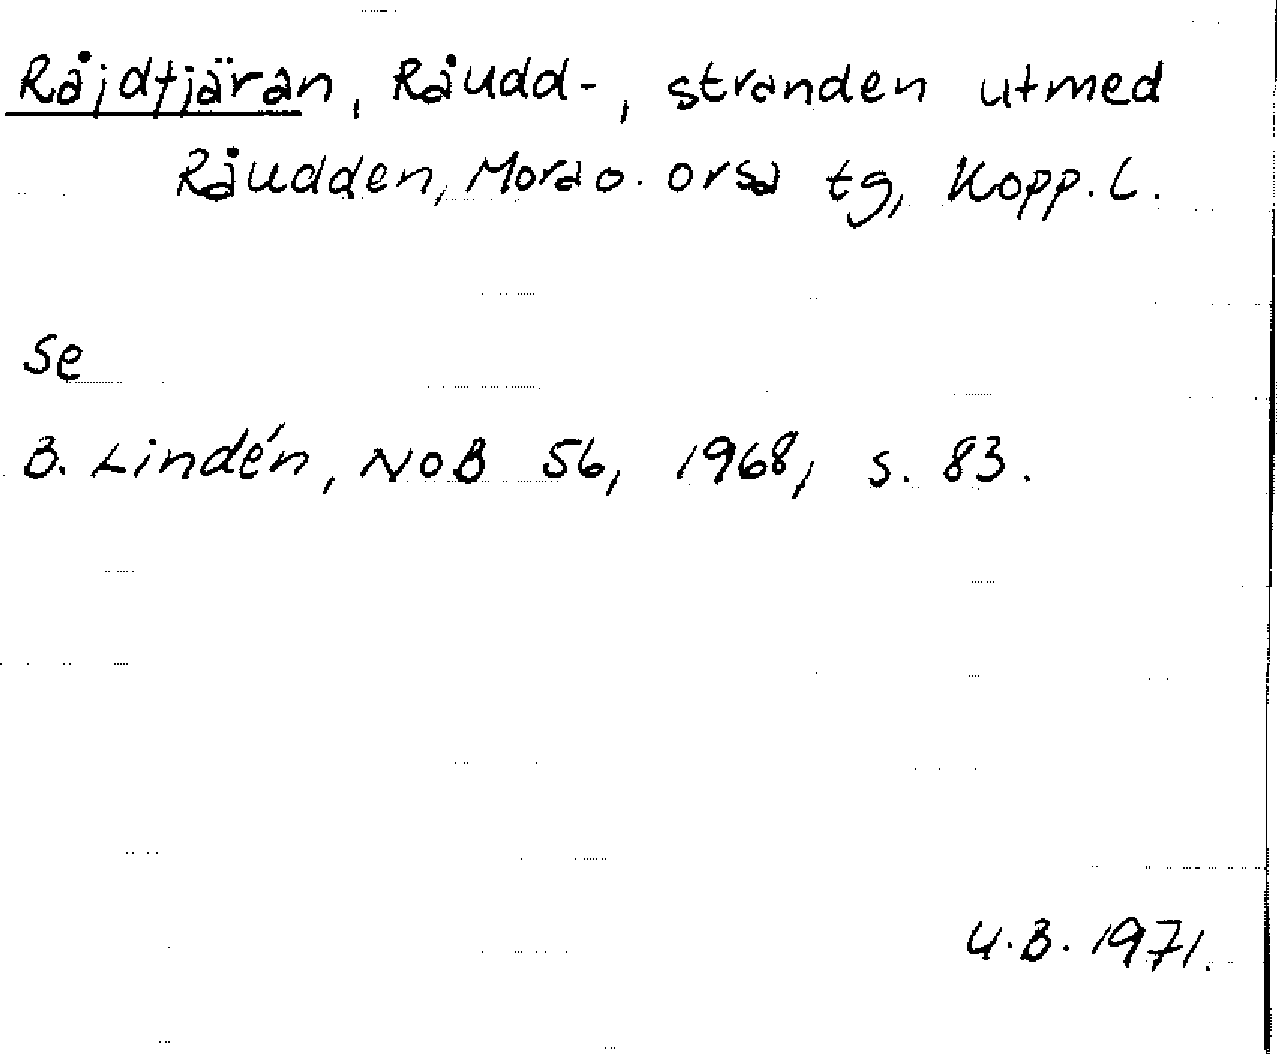 Råjdtjäran, Råudd-, stranden utmed
Råudden, Mora o. Orsa tg, Kopp. L.
Se
B. Lindén, NoB 56, 1968, s. 83.
U.B. 1971.